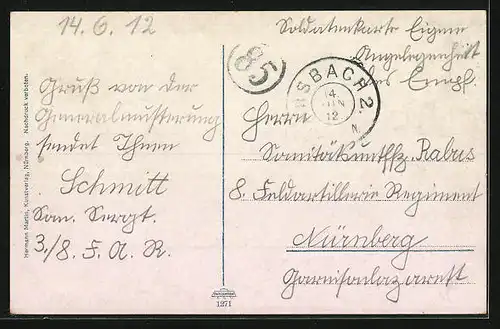 14.6.12
Gruß von der
Generalmusterung
sendet Ihnen
Schmitt
San. Sergt.
3./8. F. A. R.
Soldatenkarte Eigene
Angelegenheit
des Empf.
85
SBACH 2.
14
JUN
12
N.
Herrn
Sanitätsuntffz. Rabus
8. Feldartillerie Regiment
Nürnberg
Garnisonlazarett
Hermann Martin, Kunstverlag, Nürnberg. Nachdruck verboten.
1271